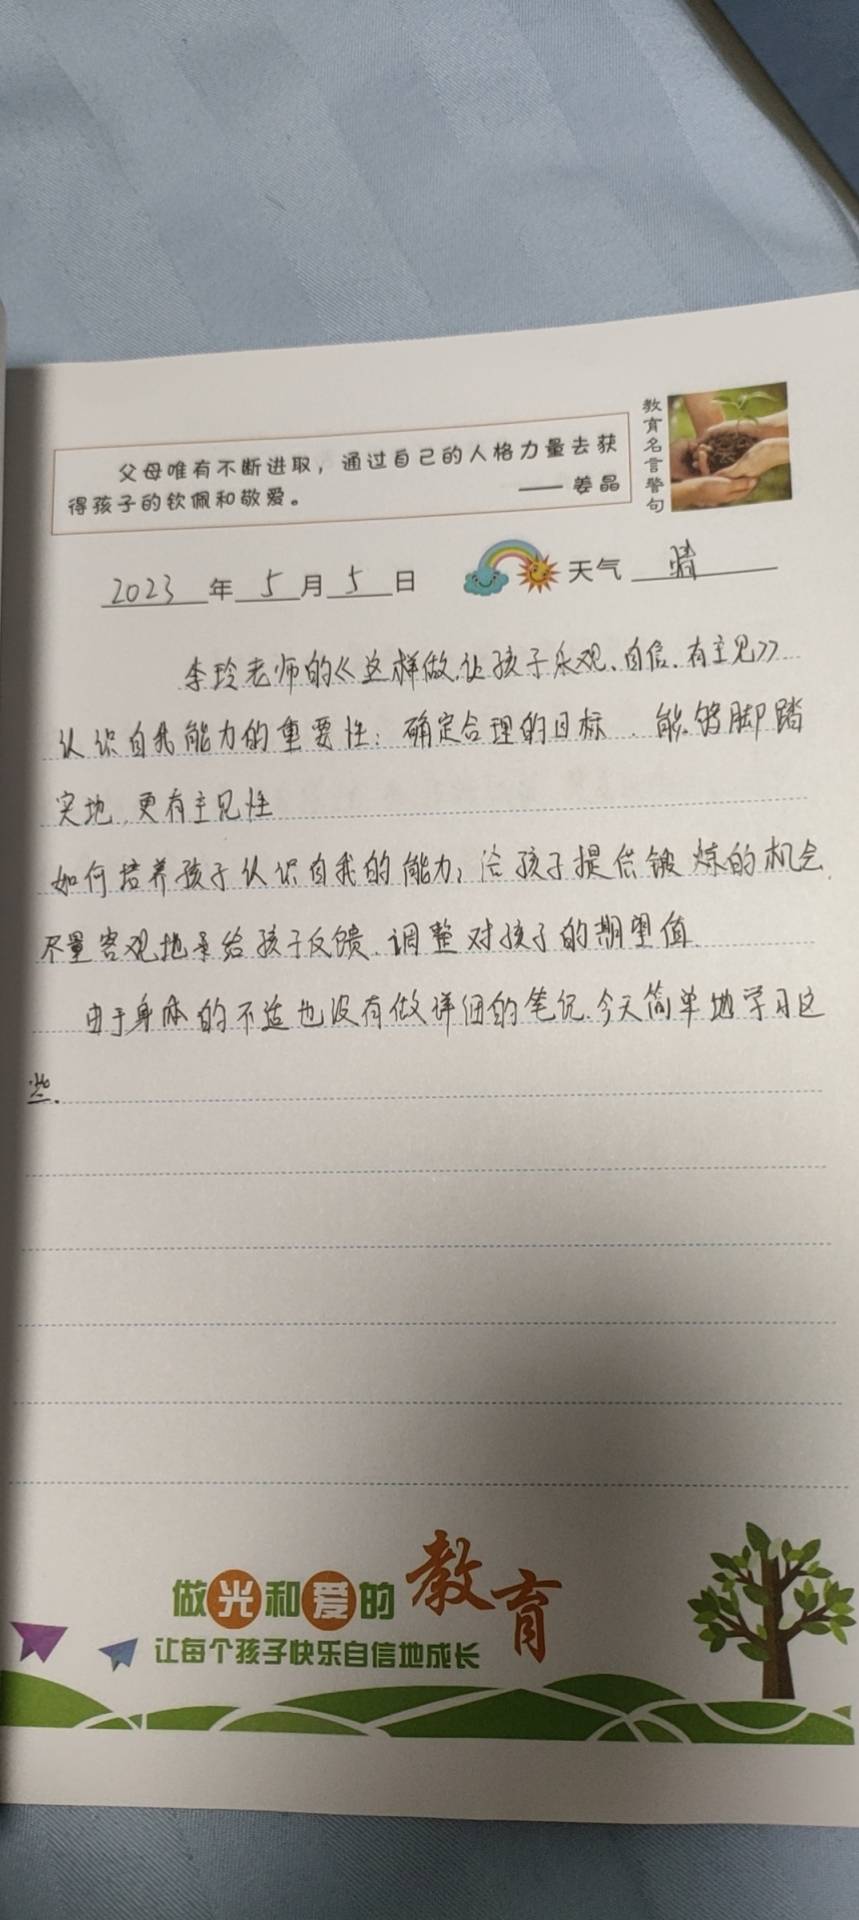 父母唯有不断进取，通过自己的人格力量去获
得孩子的钦佩和敬爱。
—— 姜晶
教育名言警句
2023年5月5日 天气 晴
李玲老师的《这样做,让孩子乐观、自信、有主见》
认识自我能力的重要性：确定合理的目标、能够脚踏
实地,更有主见性
如何培养孩子认识自我的能力；给孩子提供锻炼的机会,
尽量客观地给孩子反馈、调整对孩子的期望值.
由于身体的不适也没有做详细的笔记.今天简单地学习这
些.
做光和爱的教育
让每个孩子快乐自信地成长